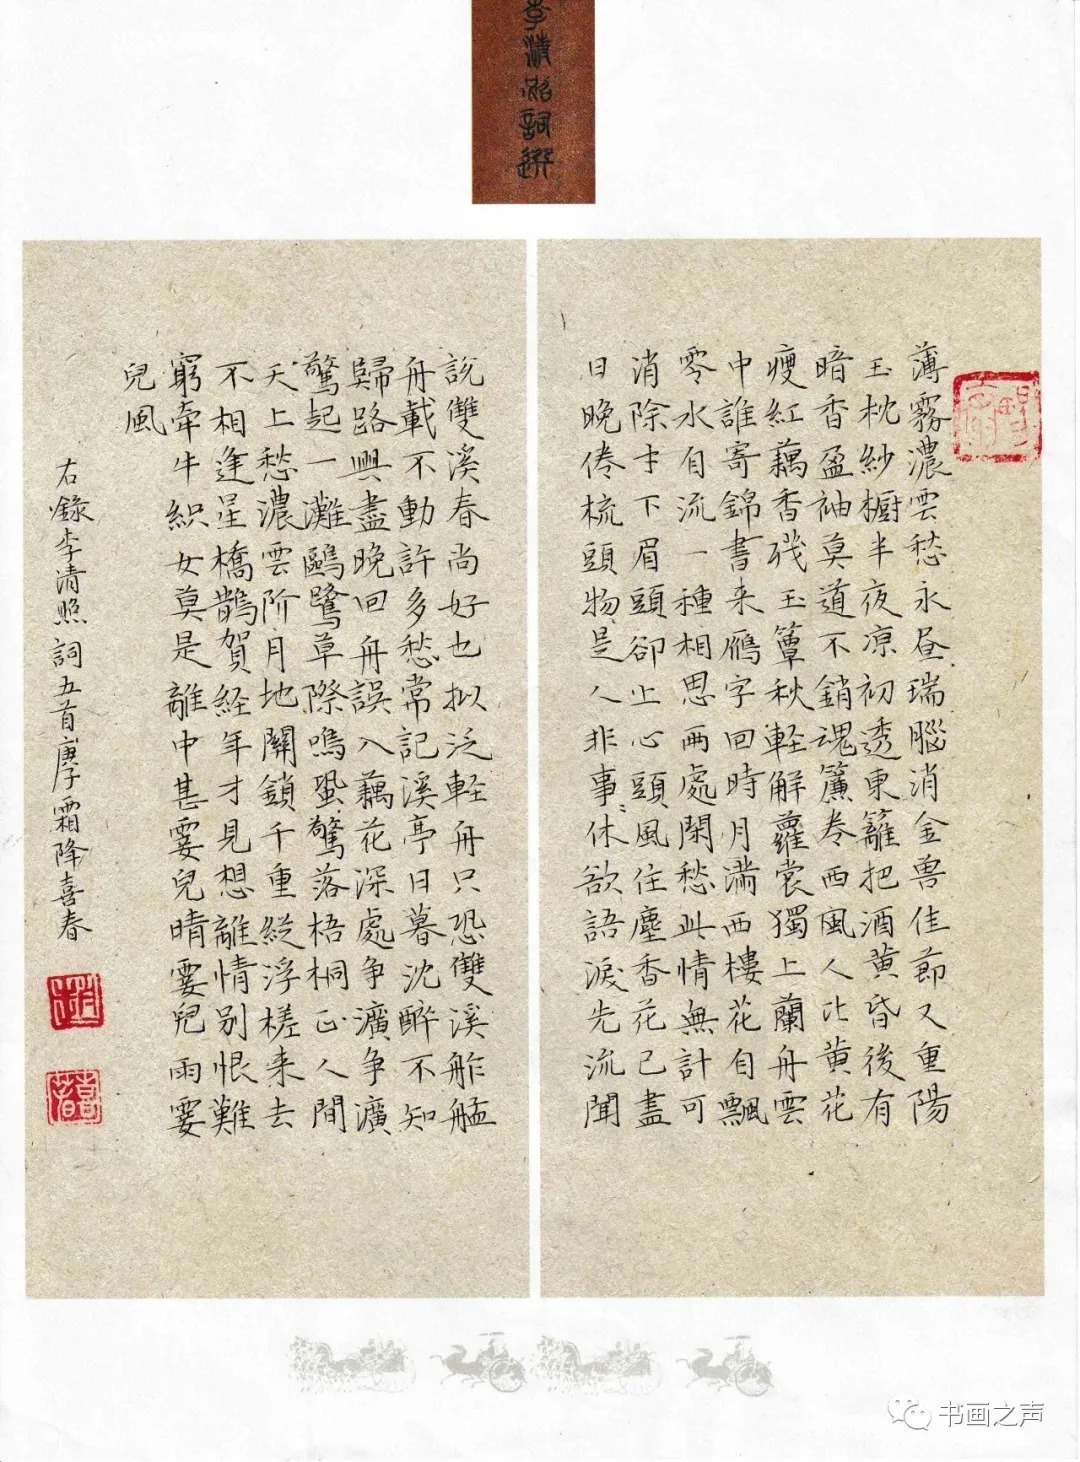 李清照詞選
薄霧濃雲愁永昼瑞腦消金兽佳節又重陽
玉枕紗櫥半夜凉初透東籬把酒黄昏後有
暗香盈袖莫道不銷魂簾卷西風人比黄花
瘦紅藕香残玉簟秋軽解蘿裳獨上蘭舟雲
中誰寄錦書来雁字回時月满西樓花自飄
零水自流一種相思两處閑愁此情無計可
消除才下眉頭卻上心頭風住塵香花已盡
日晚倦梳頭物是人非事事休欲語淚先流聞
說雙溪春尚好也拟泛軽舟只恐雙溪舴艋
舟載不動許多愁常記溪亭日暮沈醉不知
歸路興盡晚回舟誤入藕花深處争瀇争瀇
驚起一灘鷗鷺草際鳴蛩驚落梧桐正人間
天上愁濃雲阶月地關鎖千重縱浮槎来去
不相逢星橋鵲賀経年才見想離情别恨難
窮牵牛织女莫是離中甚霎兒晴霎兒雨霎
兒風
右錄李清照詞五首庚子霜降喜春
书画之声